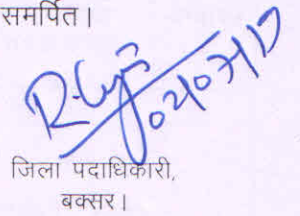 समर्पित।
02/07/17
जिला पदाधिकारी,
बक्सर।